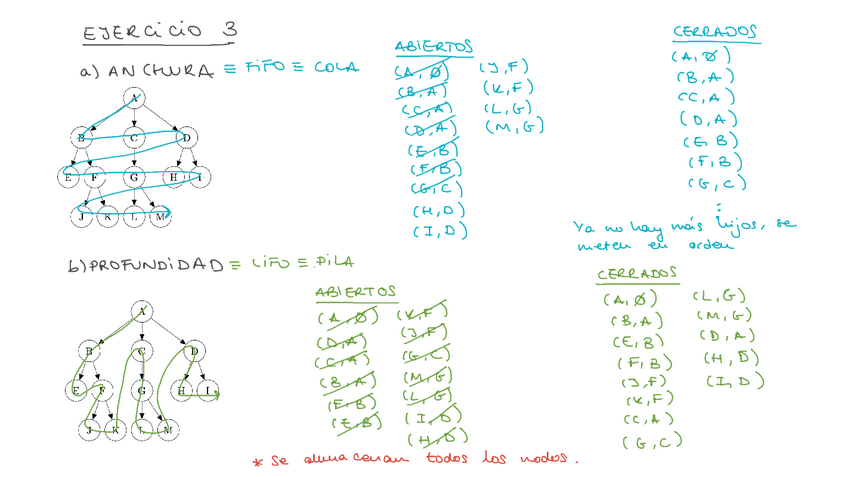 EJERCICIO 3
a) ANCHURA ≡ FIFO ≡ COLA
A
B C D
E F G H I
J K L M
ABIERTOS
(A, Ø) (J, F)
(B, A) (K, F)
(C, A) (L, G)
(D, A) (M, G)
(E, B)
(F, B)
(G, C)
(H, D)
(I, D)
CERRADOS
(A, Ø)
(B, A)
(C, A)
(D, A)
(E, B)
(F, B)
(G, C)
:
Ya no hay más hijos, se
meten en orden
b) PROFUNDIDAD ≡ LIFO ≡ PILA
A
B C D
E F G H I
J K L M
ABIERTOS
(A, Ø) (K, F)
(D, A) (J, F)
(C, A) (G, C)
(B, A) (M, G)
(F, B) (L, G)
(E, B) (I, D)
(H, D)
CERRADOS
(A, Ø) (L, G)
(B, A) (M, G)
(E, B) (D, A)
(F, B) (H, D)
(J, F) (I, D)
(K, F)
(C, A)
(G, C)
* Se almacenan todos los nodos.